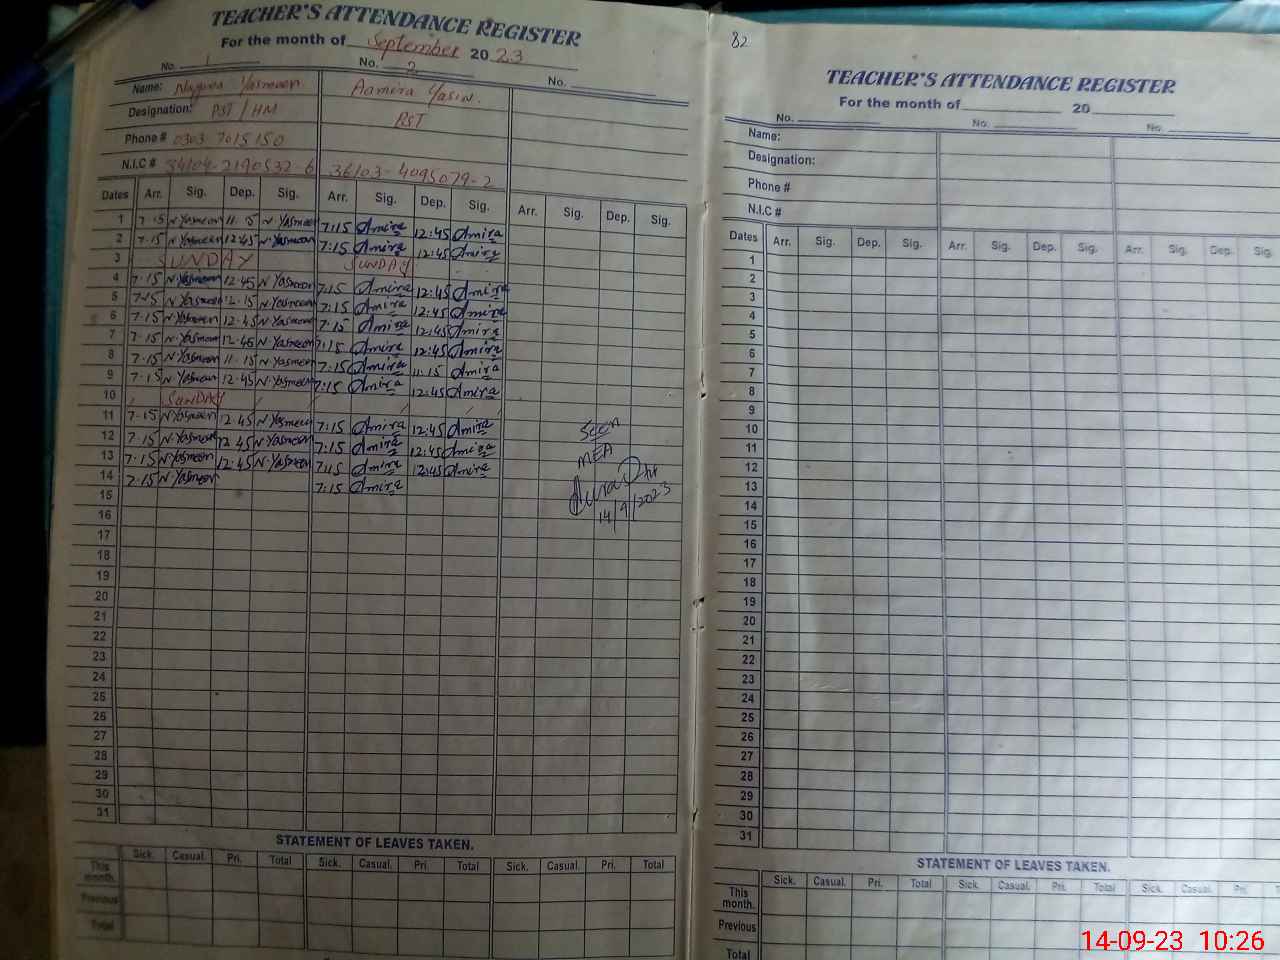 TEACHER'S ATTENDANCE REGISTER
For the month of September 20 23
No. 1 No. 2 No.
Name: Nagina Yasmeen Aamira Yasin.
Designation: PST / HM PST
Phone # 0303 7015150
N.I.C # 36103-4095079-2
Dates Arr. Sig. Dep. Sig. Arr. Sig. Dep. Sig. Arr. Sig. Dep. Sig.
1 7-15 N.Yasmeen 11-15 N.Yasmeen 7:15 Amira 12:45 Amira
2 7-15 N.Yasmeen 12-45 N.Yasmeen 7:15 Amira 12:45 Amira
3 SUNDAY SUNDAY
4 7-15 N.Yasmeen 12-45 N.Yasmeen 7:15 Amira 12:45 Amira
5 N.Yasmeen 12-15 N.Yasmeen 7:15 Amira 12:45 Amira
6 7-15 N.Yasmeen 12-45 N.Yasmeen 7:15 Amira 12:45 Amira
7 7-15 N.Yasmeen N.Yasmeen 7:15 Amira 12:45 Amira
8 7-15 N.Yasmeen 11-15 N.Yasmeen 7:15 Amira 11:15 Amira
9 7-15 N.Yasmeen 12-45 N.Yasmeen 7:15 Amira 12:45 Amira
10 SUNDAY
11 7-15 N.Yasmeen 12-45 N.Yasmeen 7:15 Amira 12:45 Amira
12 7-15 N.Yasmeen 12-45 N.Yasmeen 7:15 Amira 12:45 Amira
13 7-15 N.Yasmeen 12-45 N.Yasmeen 7:15 Amira 12:45 Amira
14 7-15 N.Yasmeen 7:15 Amira
15
16
17
18
19
20
21
22
23
24
25
26
27
28
29
30
31
Seen
MEA
14/9/2023
STATEMENT OF LEAVES TAKEN.
Sick. Casual. Pri. Total Sick. Casual. Pri. Total Sick. Casual. Pri. Total
This month.
Previous
Total
82
TEACHER'S ATTENDANCE REGISTER
For the month of 20
No. No. No.
Name:
Designation:
Phone #
N.I.C #
Dates Arr. Sig. Dep. Sig. Arr. Sig. Dep. Sig. Arr. Sig. Dep. Sig.
1
2
3
4
5
6
7
8
9
10
11
12
13
14
15
16
17
18
19
20
21
22
23
24
25
26
27
28
29
30
31
STATEMENT OF LEAVES TAKEN.
Sick. Casual. Pri. Total Sick. Casual. Pri. Total Sick. Casual. Pri.
This month.
Previous
Total
14-09-23 10:26